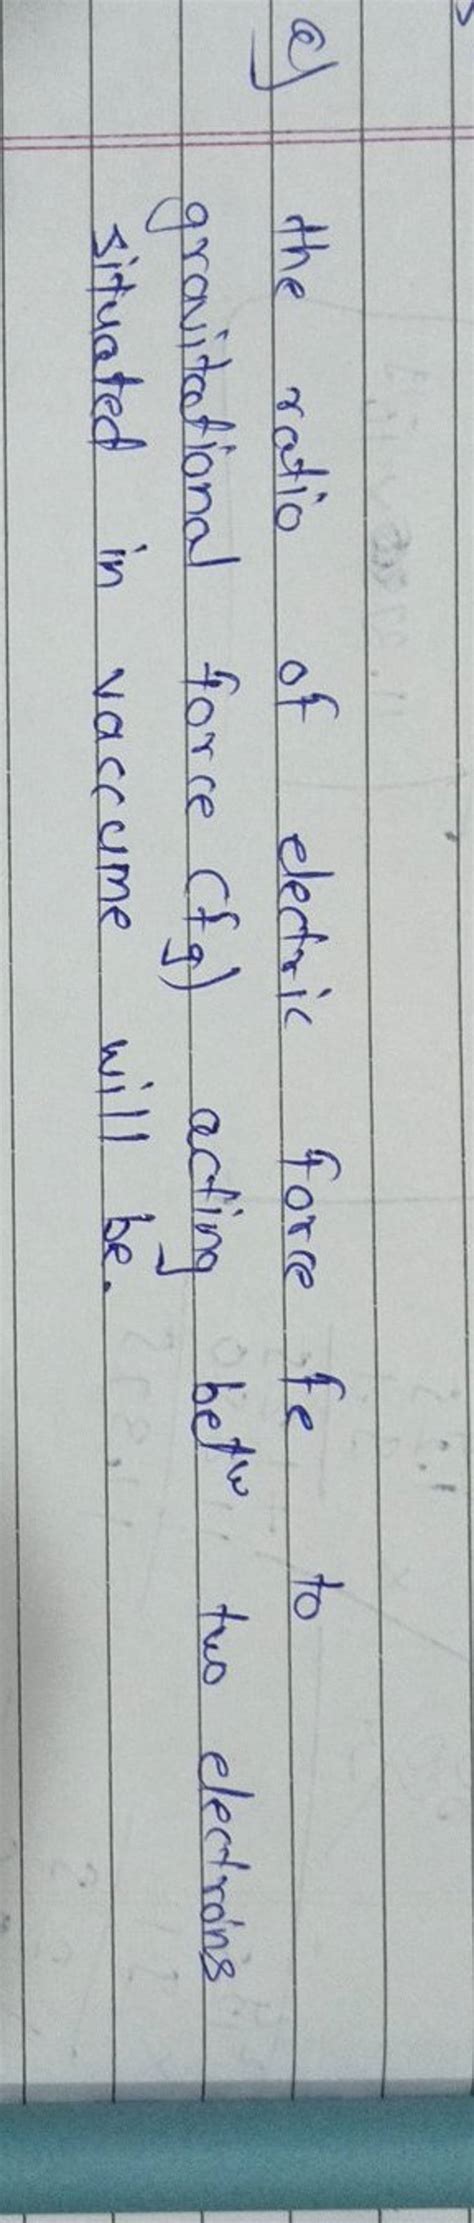 e) the ratio of electric force fe to
gravitational force (fg) acting betw two electrons
situated in vaccume will be.